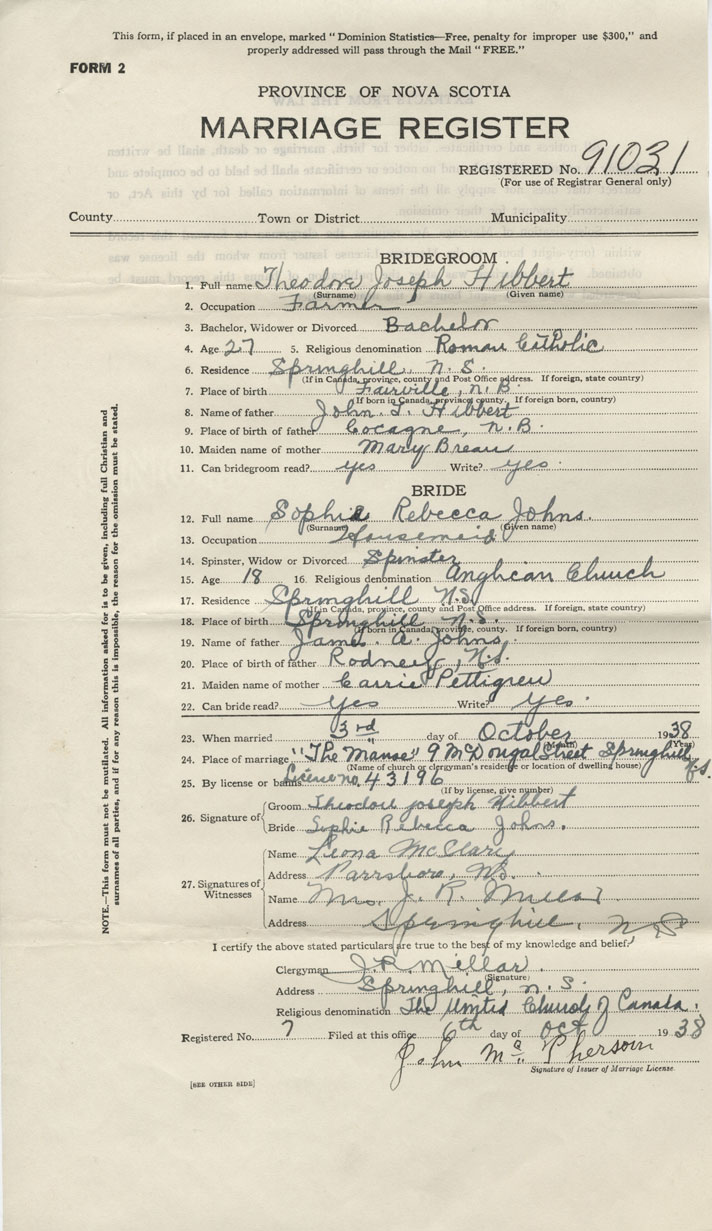 This form, if placed in an envelope, marked "Dominion Statistics—Free, penalty for improper use $300," and
properly addressed will pass through the Mail "FREE."
FORM 2
PROVINCE OF NOVA SCOTIA
MARRIAGE REGISTER
REGISTERED No. 91031
(For use of Registrar General only)
County Town or District Municipality
BRIDEGROOM
1. Full name Theodore Joseph Hibbert
(Surname) (Given name)
2. Occupation Farmer
3. Bachelor, Widower or Divorced Bachelor
4. Age 27 5. Religious denomination Roman Catholic
6. Residence Springhill, N.S.
(If in Canada, province, county and Post Office address. If foreign, state country)
7. Place of birth Fairville, N.B.
(If born in Canada, province, county. If foreign born, country)
8. Name of father John T. Hibbert
9. Place of birth of father Cocagne, N.B.
10. Maiden name of mother Mary Breau
11. Can bridegroom read? yes Write? yes.
BRIDE
12. Full name Sophie Rebecca Johns.
(Surname) (Given name)
13. Occupation Housemaid
14. Spinster, Widow or Divorced Spinster
15. Age 18 16. Religious denomination Anglican Church
17. Residence Springhill N.S.
(If in Canada, province, county and Post Office address. If foreign, state country)
18. Place of birth Springhill N.S.
(If born in Canada, province, county. If foreign born, country)
19. Name of father James A. Johns.
20. Place of birth of father Rodney, N.S.
21. Maiden name of mother Carrie Pettigrew
22. Can bride read? Yes Write? Yes.
23. When married 3rd day of October 1938
(Month) (Year)
24. Place of marriage "The Manse" 9 McDougal Street Springhill N.S.
(Name of church or clergyman's residence or location of dwelling house)
25. By license or banns License no. 43196
(If by license, give number)
26. Signature of Groom Theodore Joseph Hibbert
Bride Sophie Rebecca Johns.
27. Signatures of Witnesses
Name Leona McClary
Address Parrsboro, N.S.
Name Mrs. J. R. Millar
Address Springhill, N.S.
I certify the above stated particulars are true to the best of my knowledge and belief.
Clergyman J.R. Millar.
(Signature)
Address Springhill, N.S.
Religious denomination The United Church of Canada.
Registered No. 7 Filed at this office 6th day of Oct 1938
John McPherson
Signature of Issuer of Marriage License.
[SEE OTHER SIDE]
NOTE.—This form must not be mutilated. All information asked for is to be given, including full Christian and
surnames of all parties, and if for any reason this is impossible, the reason for the omission must be stated.